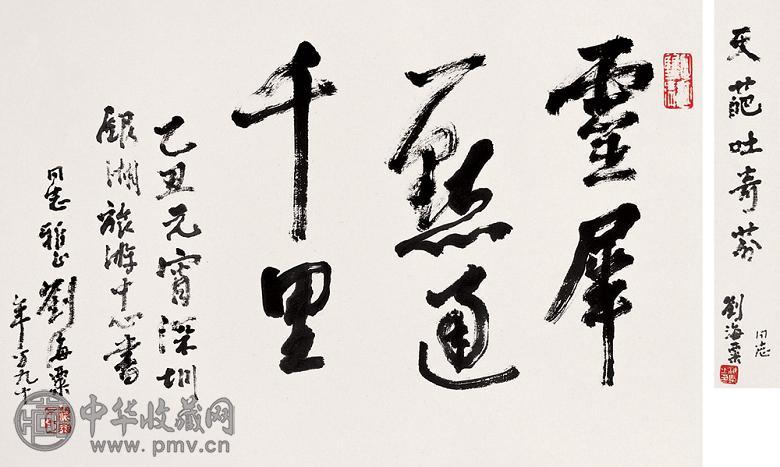 天葩吐奇芬
同志
劉海粟
靈犀
一點通
千里
乙丑元宵深圳
銀湖旅游中心書
同志雅正劉海粟
年方九十
中华收藏网
www.pmv.cn